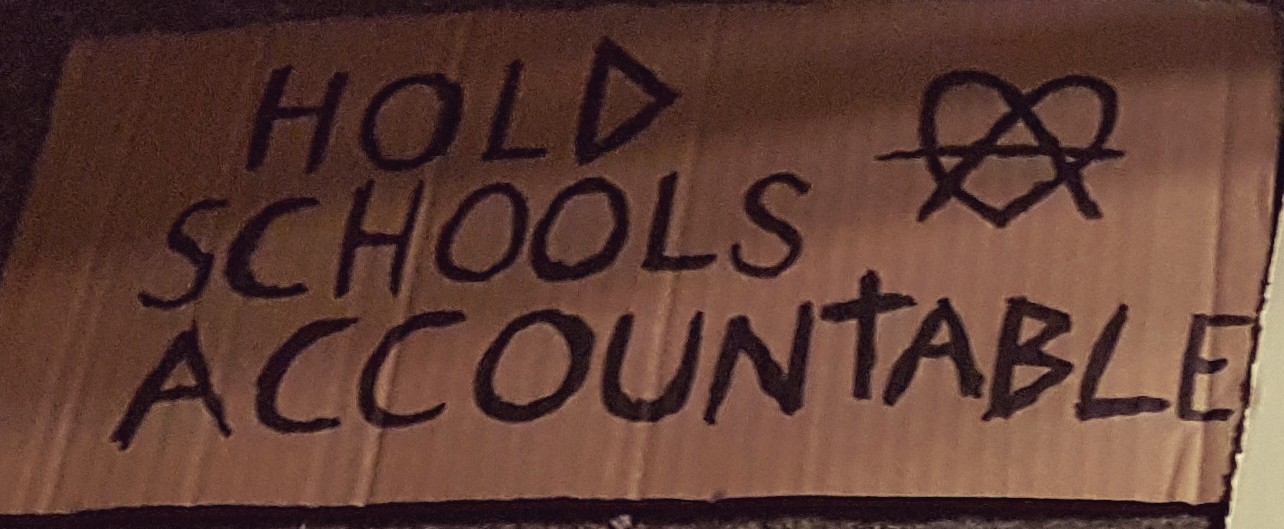 HOLD
SCHOOLS
ACCOUNTABLE